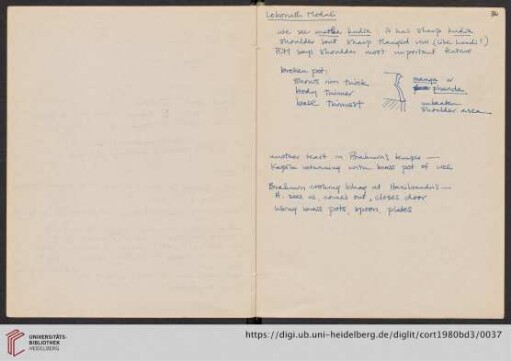 Lokonath Modak
36
we see another hudia, it has sharp hudia
shoulder but sharp flanged rim (like handi!)
TCM says shoulder most important feature
broken pot:
shows rim thick
body thinner
base thinnest
or
unbeaten
shoulder area
another feast in Brahmin's temple —
returning with brass pot of
Brahmin cooking bhog at Haribandhu's —
H. sees us, comes out, closes door
using brass pots, spoon, plates
UNIVERSITÄTS-
BIBLIOTHEK
HEIDELBERG
https://digi.ub.uni-heidelberg.de/diglit/cort1980bd3/0037